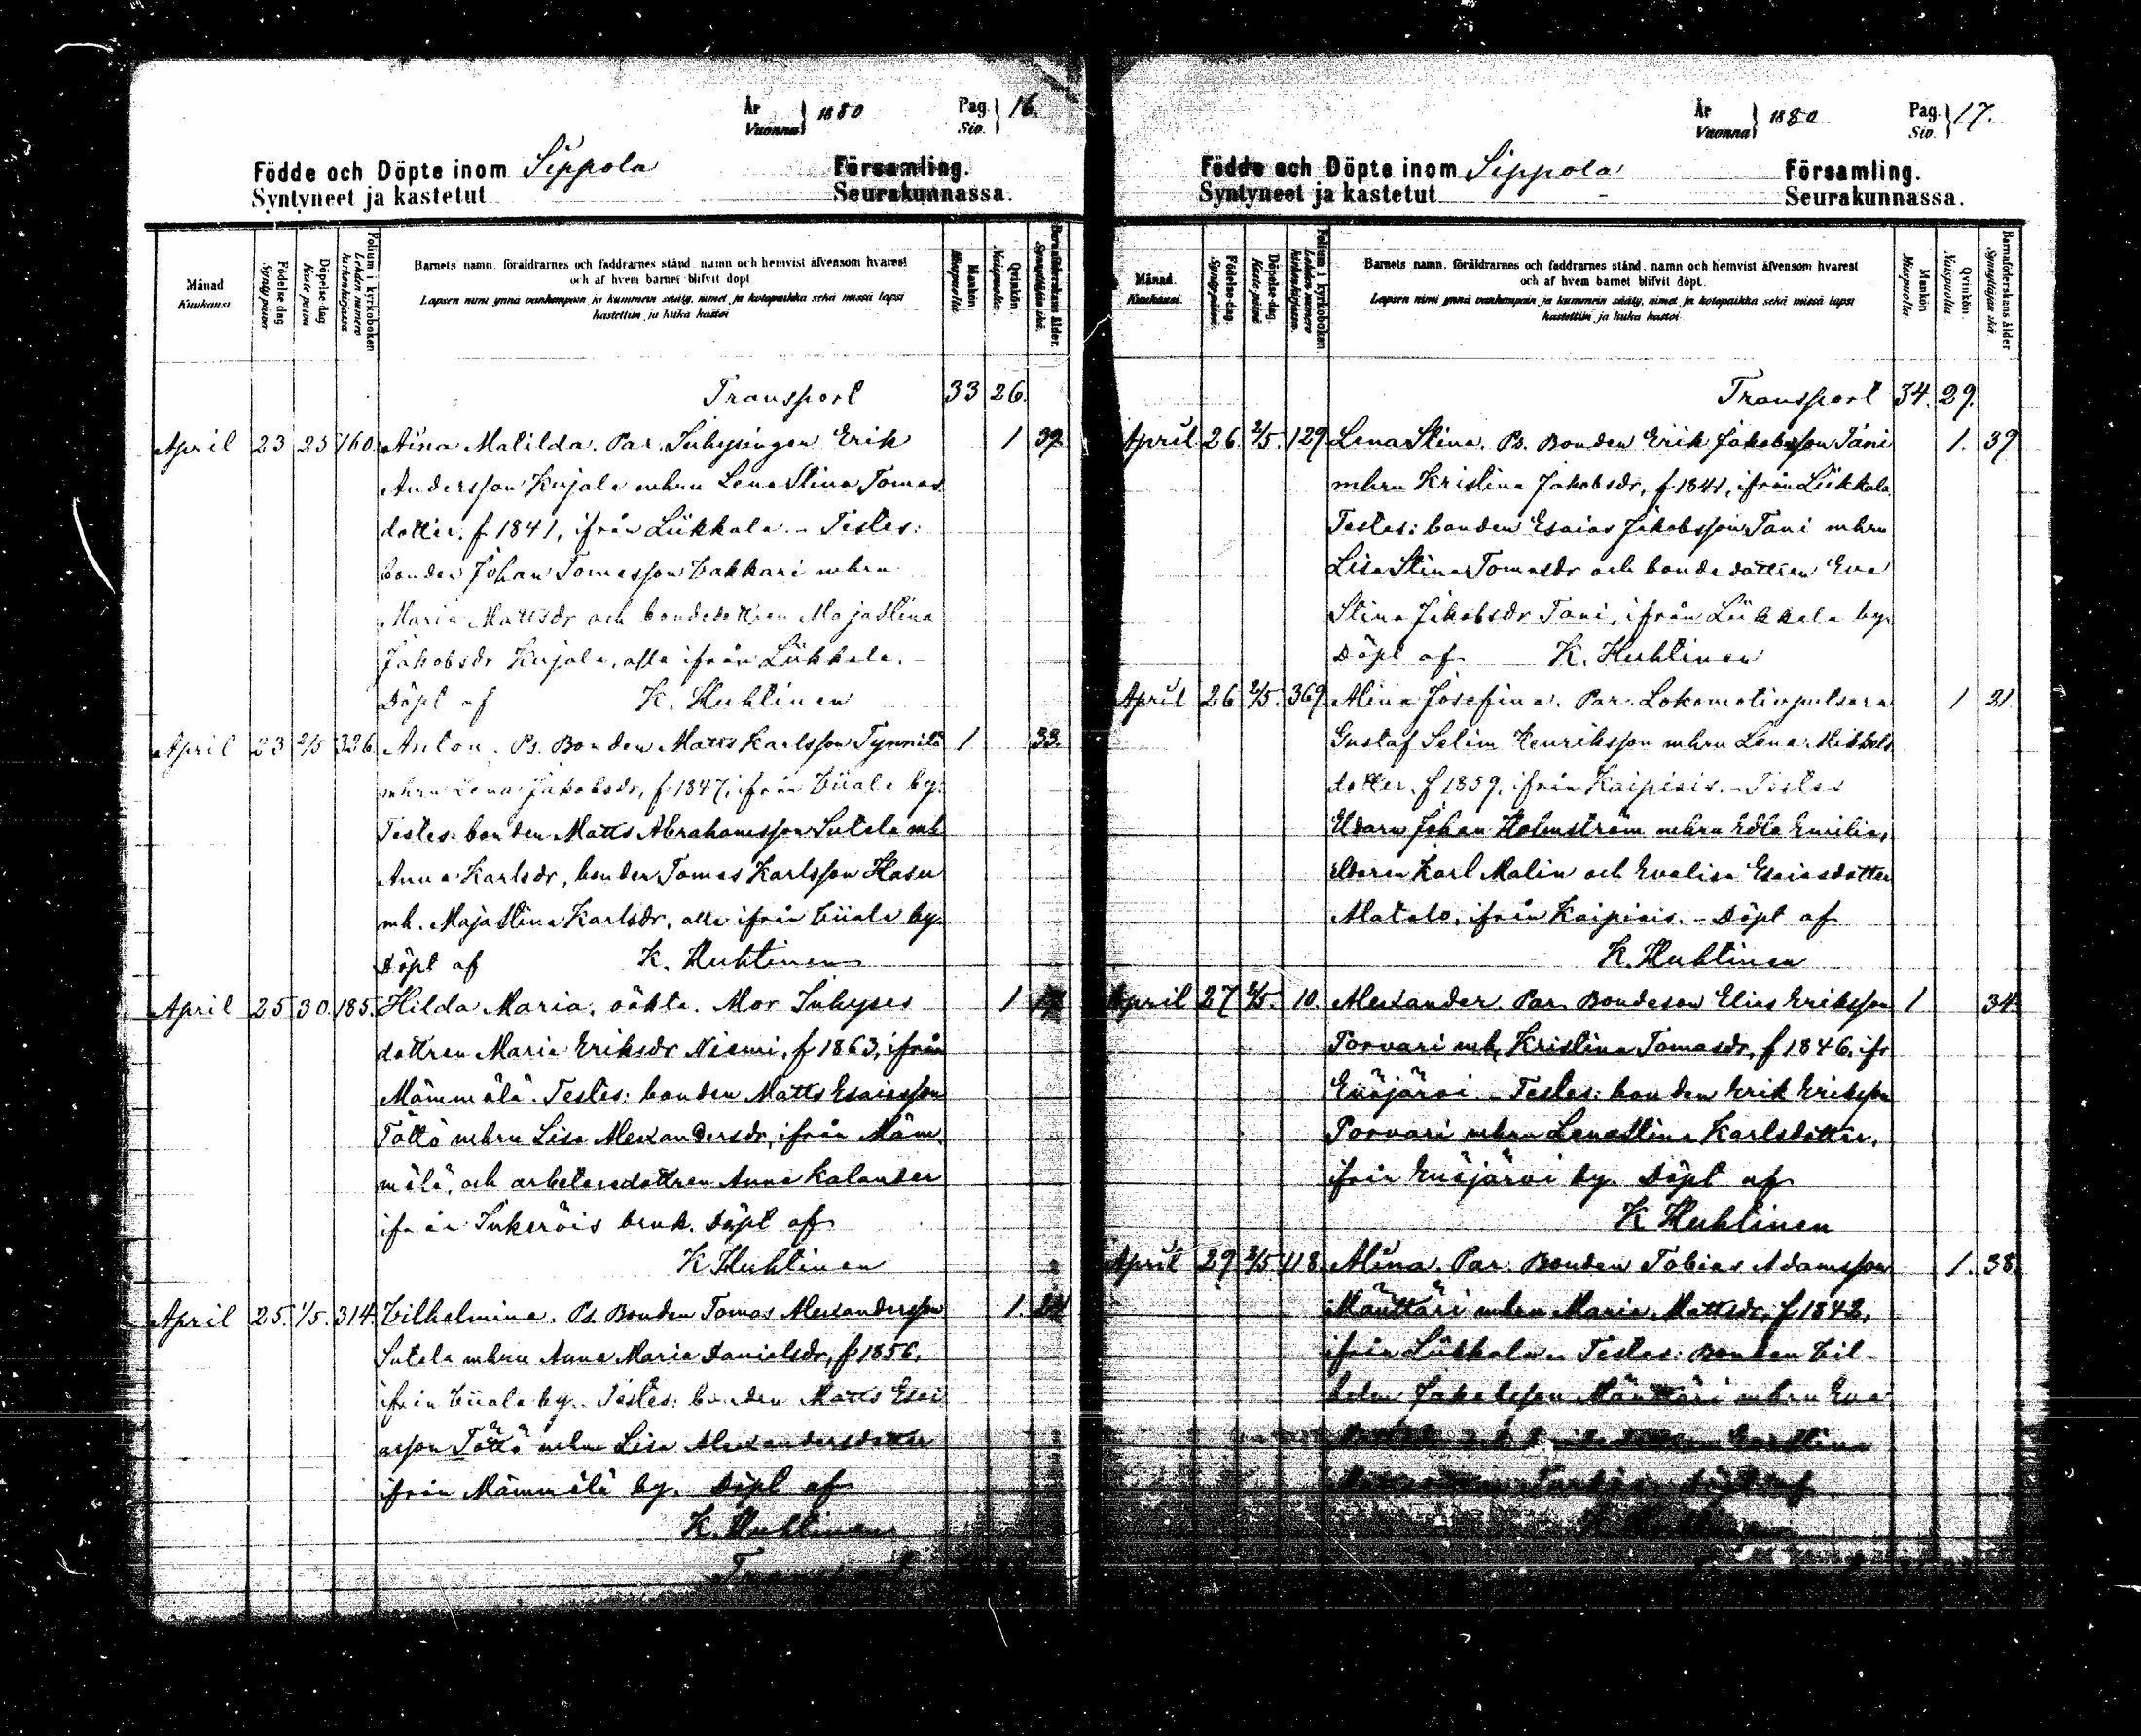 År
Vuonna } 1880 Pag.
Sio. } 16.
Födde och Döpte inom Sippola Församling.
Syntyneet ja kastetut Seurakunnassa.
Månad
Kuukausi
Födelse-dag
Synty päivä
Döpelse-dag
Kaste päivä
Folium i kyrkoboken
Lehden numero kirkonkirjassa
Barnets namn, föräldrarnes och faddrarnes stånd, namn och hemvist äfvensom hvarest
och af hvem barnet blifvit döpt
Lapsen nimi ynnä vanhempain ja kummein sääty, nimet ja kotopaikka sekä missä lapsi
kastettiin ja kuka kastoi
Mankön
Miespuolia
Qvinkön.
Naispuolia
Barnaföderskans ålder.
Synnyttäjän ikä.
Transport 33 26.
April 23 25 160. Aina Matilda. Par. Inhysingen Erik 1 39.
Andersson Kujala mhru Lena Stina Tomas
dotter. f 1841, ifrån Liikkala. - Testes:
bonden Johan Tomasson Vakkari mhru
Maria Mattsdr och bondedottren Maja Stina
Jakobsdr Kujala, alla ifrån Liikkala. -
Döpt af K. Huhtinen
April 23 2/5 336. Anton. Ps. Bonden Matts Karlsson Tynnilä 1 33.
mhru Lena Jakobsdr, f 1847, ifrån Viiala by.
Testes: bonden Matts Abrahamsson Sutela mh
Anna Karlsdr, bonden Tomas Karlsson Hasu
mh. Maja Stina Karlsdr, alla ifrån Viiala by.
Döpt af K. Huhtinen
April 25 30. 185. Hilda Maria, oäkta. Mor Inhyses 1
dottren Maria Eriksdr Niemi, f 1863, ifrån
Mämmälä. Testes: bonden Matts Esaiasson
Töttö mhru Lisa Alexandersdr, ifrån Mäm
mälä, och arbetaredottren Anna Kalander
ifrån Inkeröis bruk. Döpt af
K Huhtinen
April 25. 1/5. 314. Vilhelmina. Ps. Bonden Tomas Alexandersson 1. 24
Sutela mhru Anna Maria Danielsdr, f 1856,
ifrån Viiala by. Testes: bonden Matts Esai
asson Töttö mhru Lisa Alexandersdotter
ifrån Mämmälä by. Döpt af
K. Huhtinen
Transport
År
Vuonna } 1880 Pag.
Sio. } 17.
Födde och Döpte inom Sippola Församling.
Syntyneet ja kastetut Seurakunnassa.
Månad
Kuukausi.
Födelse-dag.
Synty päivä.
Döpelse-dag.
Kaste päivä
Folium i kyrkoboken
Lehden numero kirkonkirjassa.
Barnets namn, föräldrarnes och faddrarnes stånd, namn och hemvist äfvensom hvarest
och af hvem barnet blifvit döpt.
Lapsen nimi ynnä vanhempain ja kummein sääty, nimet ja kotopaikka sekä missä lapsi
kastettiin ja kuka kastoi
Mankön
Miespuolia
Qvinkön.
Naispuolia
Barnaföderskans ålder
Synnyttäjän ikä
Transport 34. 29.
April 26. 2/5. 129 Lena Stina. Ps. Bonden Erik Jakobsson Tani 1. 39
mhru Kristina Jakobsdr, f 1841, ifrån Liikkala.
Testes: bonden Esaias Jakobsson Tani mhru
Lisa Stina Tomasdr och bondedottren Eva
Stina Jakobsdr Tani, ifrån Liikkala by.
Döpt af K. Huhtinen
April 26 2/5. 369 Alina Josefina. Par. Lokomotivputsaren 1 21
Gustaf Selim Henriksson mhru Lena Mikkels
dotter, f 1859, ifrån Kaipiais. - Testes
Eldaren Johan Holmström mhru Edla Emilia,
eldaren Karl Malin och Evalisa Esaiasdotter
Matalo, ifrån Kaipiais. - Döpt af
K. Huhtinen
April 27 2/5. 10. Alexander. Par. Bondeson Elias Eriksson 1 34.
Porvari mh. Kristina Tomasdr, f 1846, ifr
Enäjärvi - Testes: bonden Erik Eriksson
Porvari mhru Lena Stina Karlsdotter,
ifrån Enäjärvi by. Döpt af
K Huhtinen
April 29 2/5 118. Alina. Par. Bonden Tobias Adamsson 1. 38.
Mänttäri mhru Maria Mattsdr, f 1842,
ifrån Liikkala. Testes: Bonden Vil-
helm Jakobsson Mänttäri mhru Eva
Stina
Döpt af